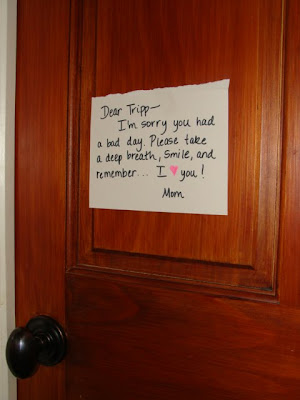 Dear Tripp—
I'm sorry you had
a bad day. Please take
a deep breath, smile, and
remember... I ♥ you!
Mom